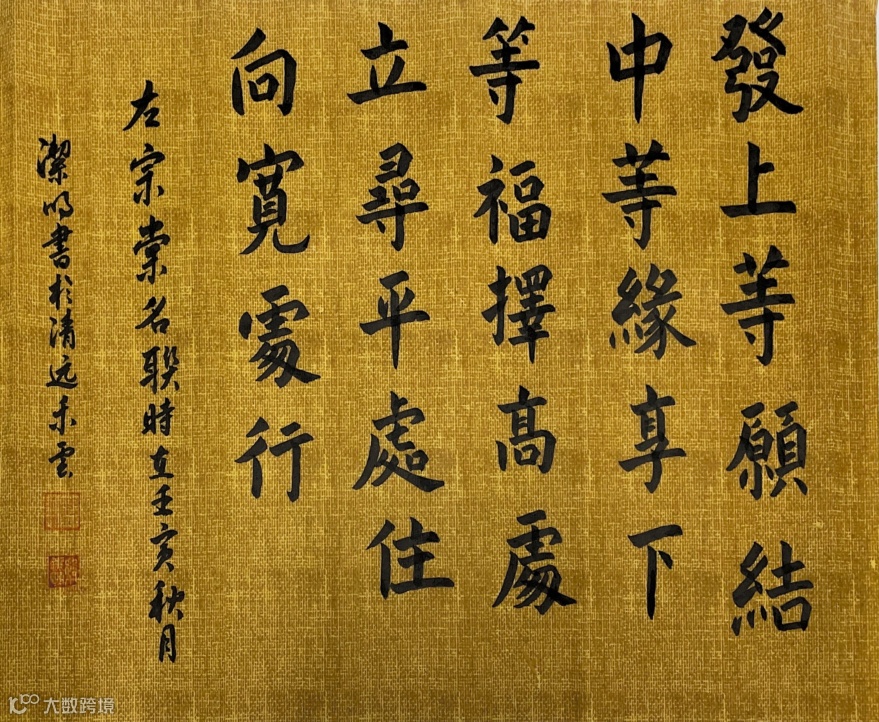 發上等願結
中等緣享下
等福擇高處
立尋平處住
向寬處行
左宗棠名聯時在壬寅秋月
潔明書於清远禾雲
大数跨境